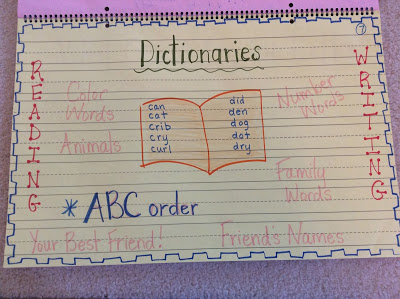 7
Dictionaries
READING
WRITTING
Color
Words
Animals
can
cat
crib
cry
curl
did
den
dog
dot
dry
Number
Words
Family
Words
* ABC order
Your Best Friend!
Friend's Names